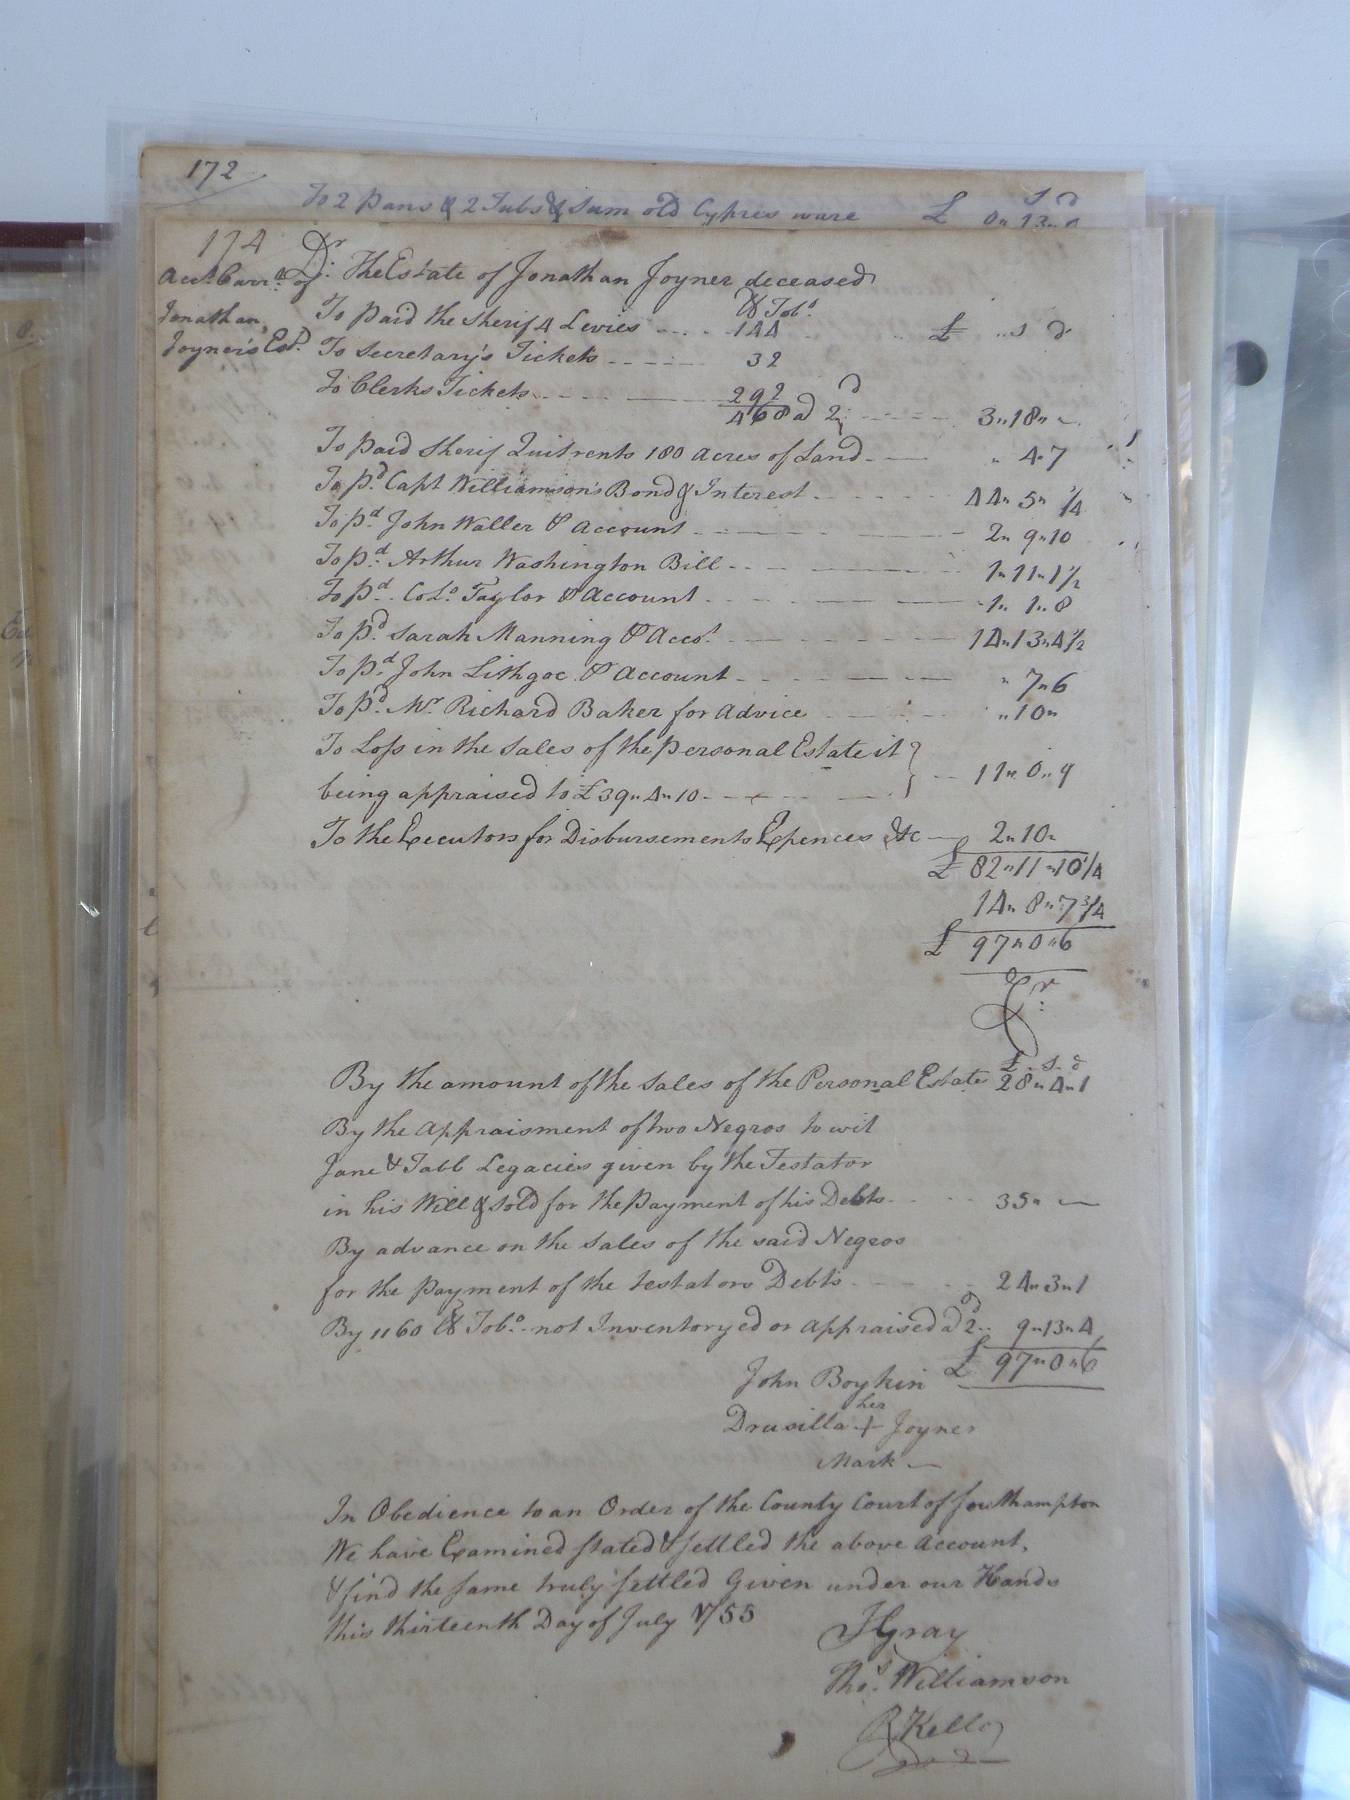 172
To 2 pans & 2 Tubs & sum old Cypres ware £ s d
0 " 13 " 0
174
Dr. The Estate of Jonathan Joyner deceased
Acct. Carrt. of
Jonathan
Joyner's Estd.
lb Tobo.
To paid the Sherif 4 Levies 144 £ " s d
To Secretary's Tickets 32
To Clerks Tickets 292
468 a 2d 3 " 18 "
To paid Sherif Quitrents 180 acres of Land " 4 " 7
To pd. Capt Williamson's Bond & Interest 44 " 5 " 1/4
To pd. John Waller P account 2 " 9 " 10
To pd. Arthur Washington Bill 1 " 11 " 1 1/2
To pd. Colo. Taylor P account 1 " 1 " 8
To pd. Sarah Manning P Accot. 14 " 13 " 4 1/2
To pd. John Lithgoe P account " 7 " 6
To pd. Mr. Richard Baker for advice " 10 "
To Loss in the sales of the personal Estate it
being appraised to £39 " 4 " 10 11 " 0 " 9
To the Executors for Disbursements Expences &c 2 " 10 "
£ 82 " 11 " 10 1/4
14 " 8 " 7 3/4
£ 97 " 0 " 6
Cr.
£ s d
By the amount of the sales of the Personal Estate 28 " 4 " 1
By the appraisment of two Negros to wit
Jane & Tabb Legacies given by the Testator
in his Will & sold for the payment of his Debts 35 "
By advance on the sales of the said Negros
for the payment of the testators Debts 24 " 3 " 1
By 1160 lb Tobo. not Inventoryed or appraised a 2d 9 " 13 " 4
£ 97 " 0 " 6
John Boykin
her
Drusilla + Joyner
Mark
In Obedience to an Order of the County Court of Southampton
We have Examined stated & settled the above account,
& find the same truly settled Given under our Hands
this thirteenth Day of July 1755
J Gray
Thos. Williamson
R Kello